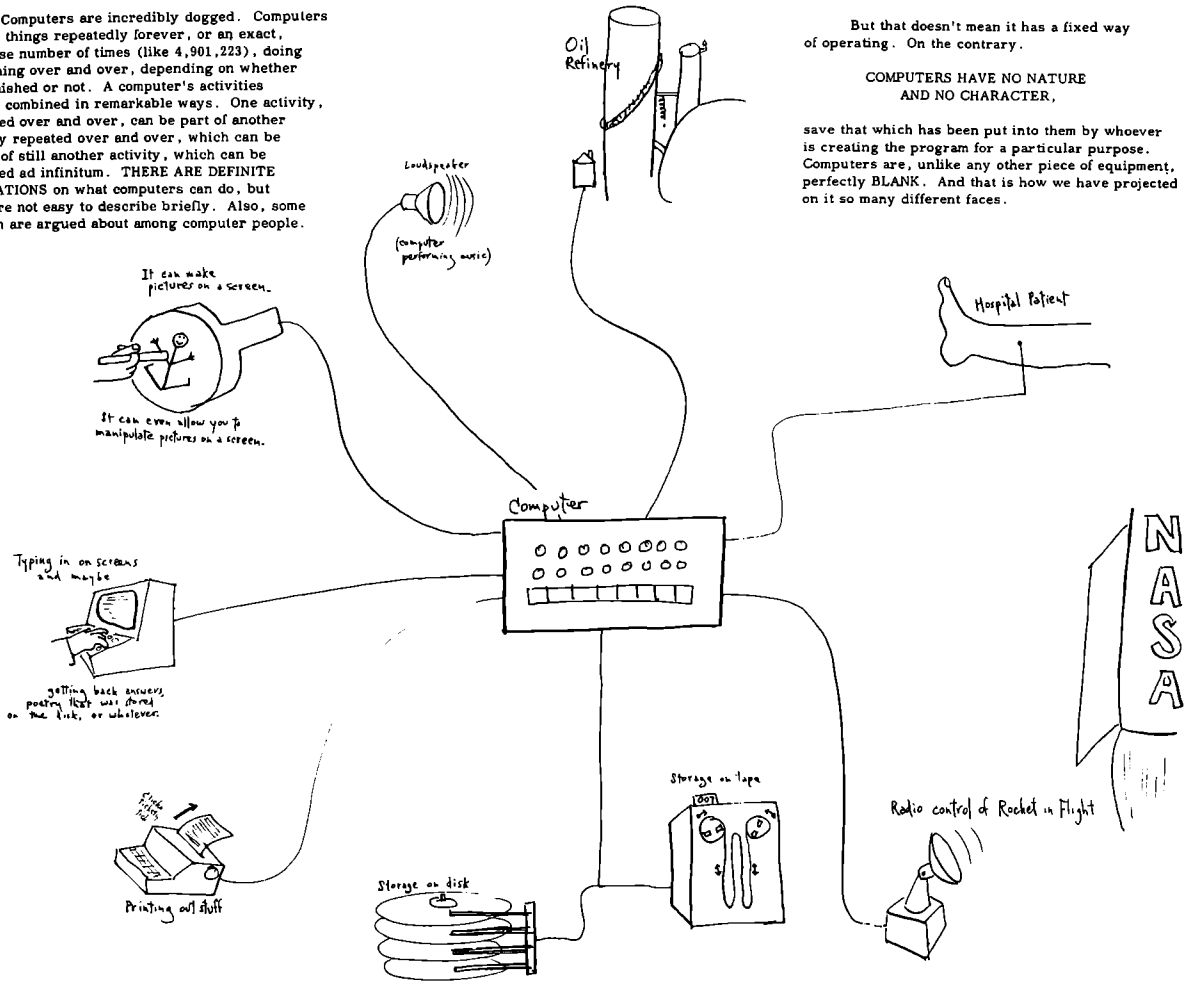 Computers are incredibly dogged. Computers
things repeatedly forever, or an exact,
se number of times (like 4,901,223), doing
ing over and over, depending on whether
ished or not. A computer's activities
combined in remarkable ways. One activity,
ed over and over, can be part of another
y repeated over and over, which can be
of still another activity, which can be
ed ad infinitum. THERE ARE DEFINITE
ATIONS on what computers can do, but
re not easy to describe briefly. Also, some
n are argued about among computer people.
But that doesn't mean it has a fixed way
of operating. On the contrary.
COMPUTERS HAVE NO NATURE
AND NO CHARACTER,
save that which has been put into them by whoever
is creating the program for a particular purpose.
Computers are, unlike any other piece of equipment,
perfectly BLANK. And that is how we have projected
on it so many different faces.
Oil
Refinery
Loudspeaker
(computer
performing music)
It can make
pictures on a screen.
It can even allow you to
manipulate pictures on a screen.
Hospital Patient
Computer
NASA
Typing in on screens
and maybe
getting back answers,
poetry that was stored
on the disk, or whatever.
Printing out stuff
Storage on disk
Storage on tape
007
Radio control of Rocket in Flight